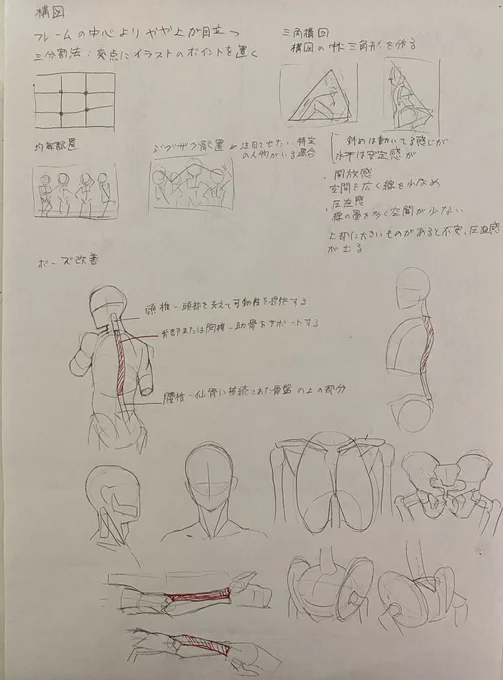 構図
フレームの中心よりやや上が目立つ
三分割法：交点にイラストのポイントを置く
三角構図
構図の中に三角形を作る
均等配置
ジグザグ配置 ← 注目させたい特定
の人物がいる場合
斜めは動いてる感じが
水平は安定感が
・開放感
空間を広く線を少なめ
・圧迫感
線の量を多く空間が少ない
・上部に大きいものがあると不安、圧迫感
が出る
ポーズ改善
頸椎－頭部を支えて可動性を提供する
または胸椎－肋骨をサポートする
腰椎－仙骨に接続された骨盤の上の部分